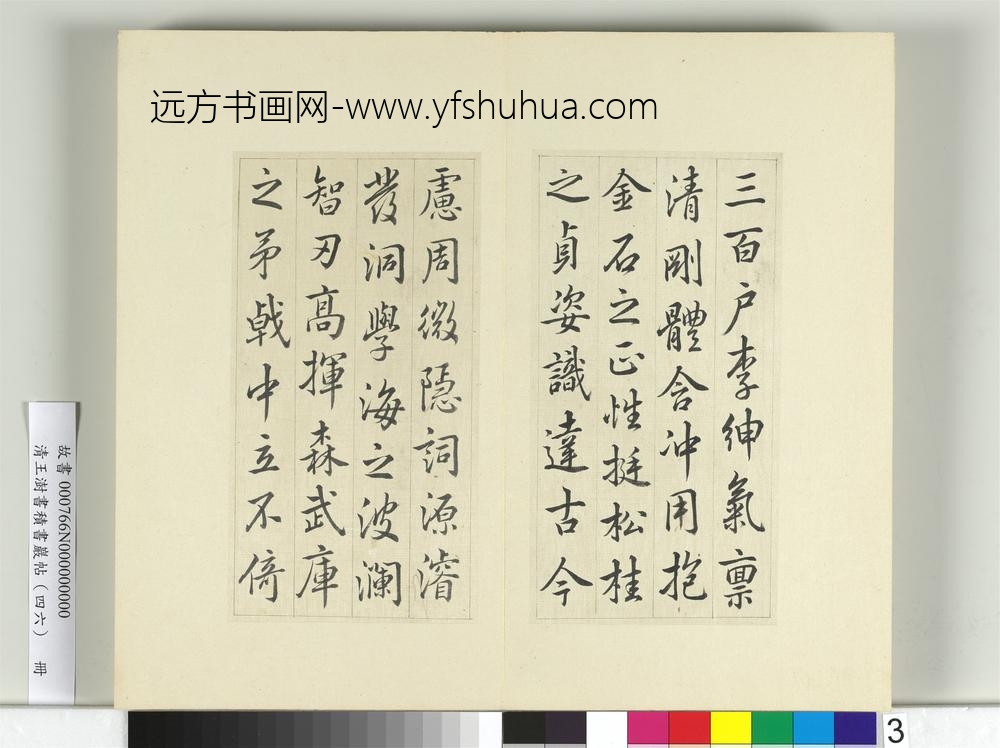 远方书画网-www.yfshuhua.com
三百户李紳氣禀
清剛體含冲用抱
金石之正性挺松桂
之貞姿識達古今
慮周微隱詞源濬
發洞學海之波瀾
智刃高揮森武庫
之矛戟中立不倚
故書000766N000000000
清王澍書積書巖帖(四六) 冊
3